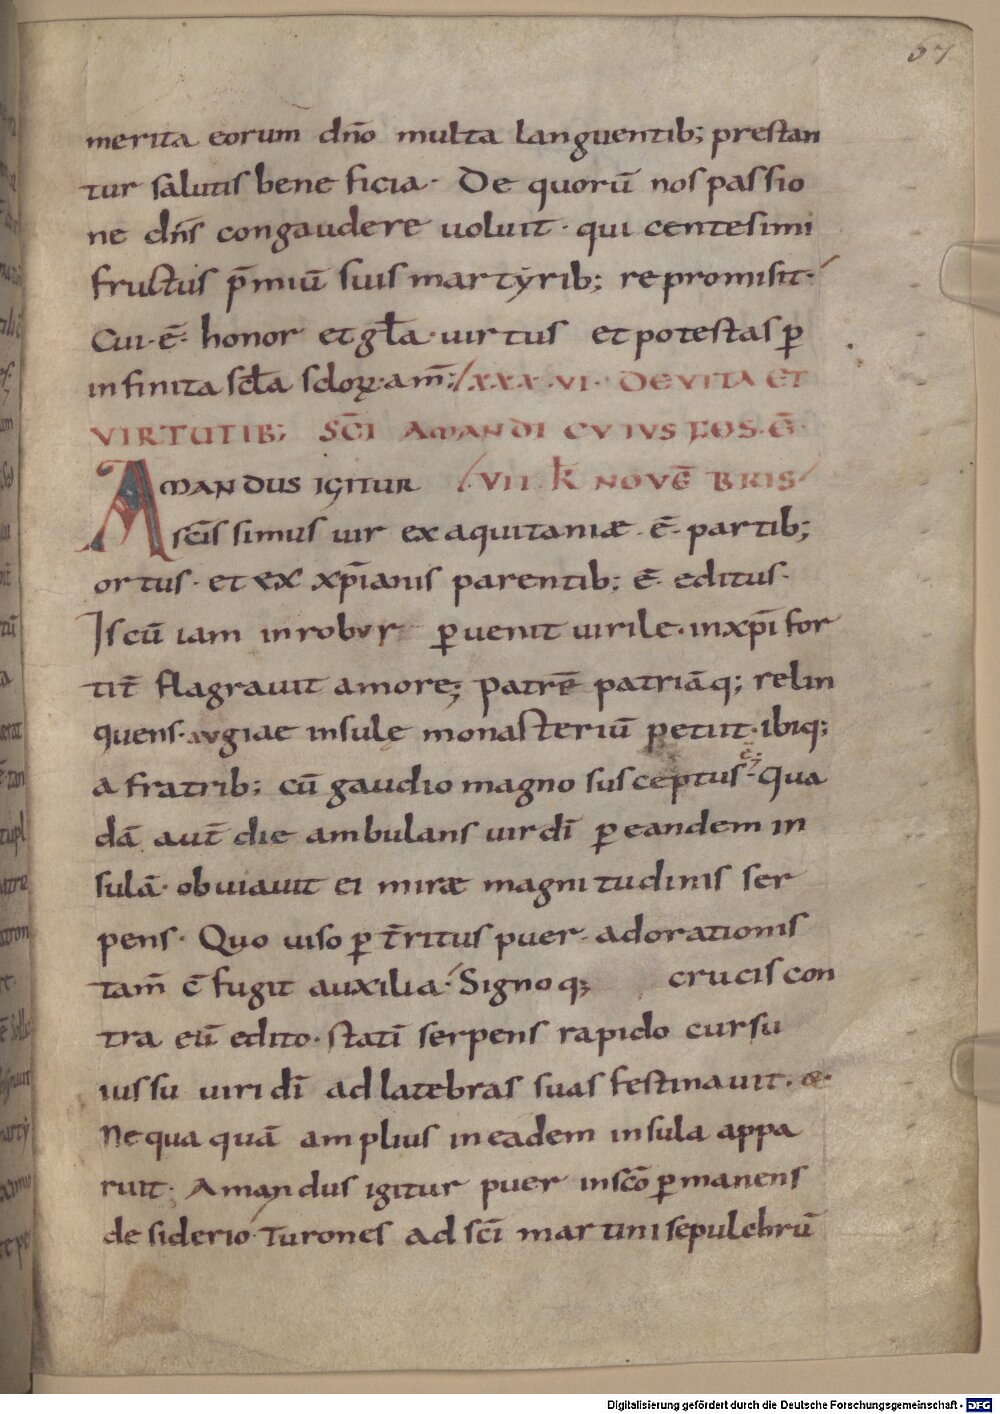 67
merita eorum dn̄o multa languentib; prestan
tur salutis beneficia· De quorū nos passio
ne dn̄s congaudere uoluit· qui centesimi
fructus p̄miū suis martyrib; repromisit·
Cui·ē· honor et gl̄a·uirtus et potestas ꝑ
infinita scl̄a scloꝝ·am̄; XXXVI· DE VITA ET
VIRTUTIB; SC̄I AMANDI CVIVS FOS·Ē·
AMANDUS IGITUR VII K̄ NOVĒBRIS
sc̄issimus uir ex aquitaniæ·ē· partib;
ortus· et ex xp̄ianis parentib; ē· editus·
Is cū iam in robur ꝑuenit uirile· in xp̄i for
tit̄ flagrauit amore; Patrē patriāq; relin
quens· augiae insule monasteriū petiit· ibiq;
a fratrib; cū gaudio magno susceptus ē; Qua
dā aut̄ die ambulans uir dī ꝑ eandem in
sulā· obuiauit ei miræ magnitudinis ser
pens· Quo uiso ꝑt̄ritus puer· adorationis
tam̄ c̄fugit auxilia· Signoq; crucis con
tra eū edito· statī serpens rapido cursu
iussu uiri dī ad latebras suas festinauit· &
nequaquā amplius in eadem insula appa
ruit· Amandus igitur puer in sc̄o ꝑmanens
desiderio· Turones ad sc̄i martini sepulchrū
Digitalisierung gefördert durch die Deutsche Forschungsgemeinschaft - DFG